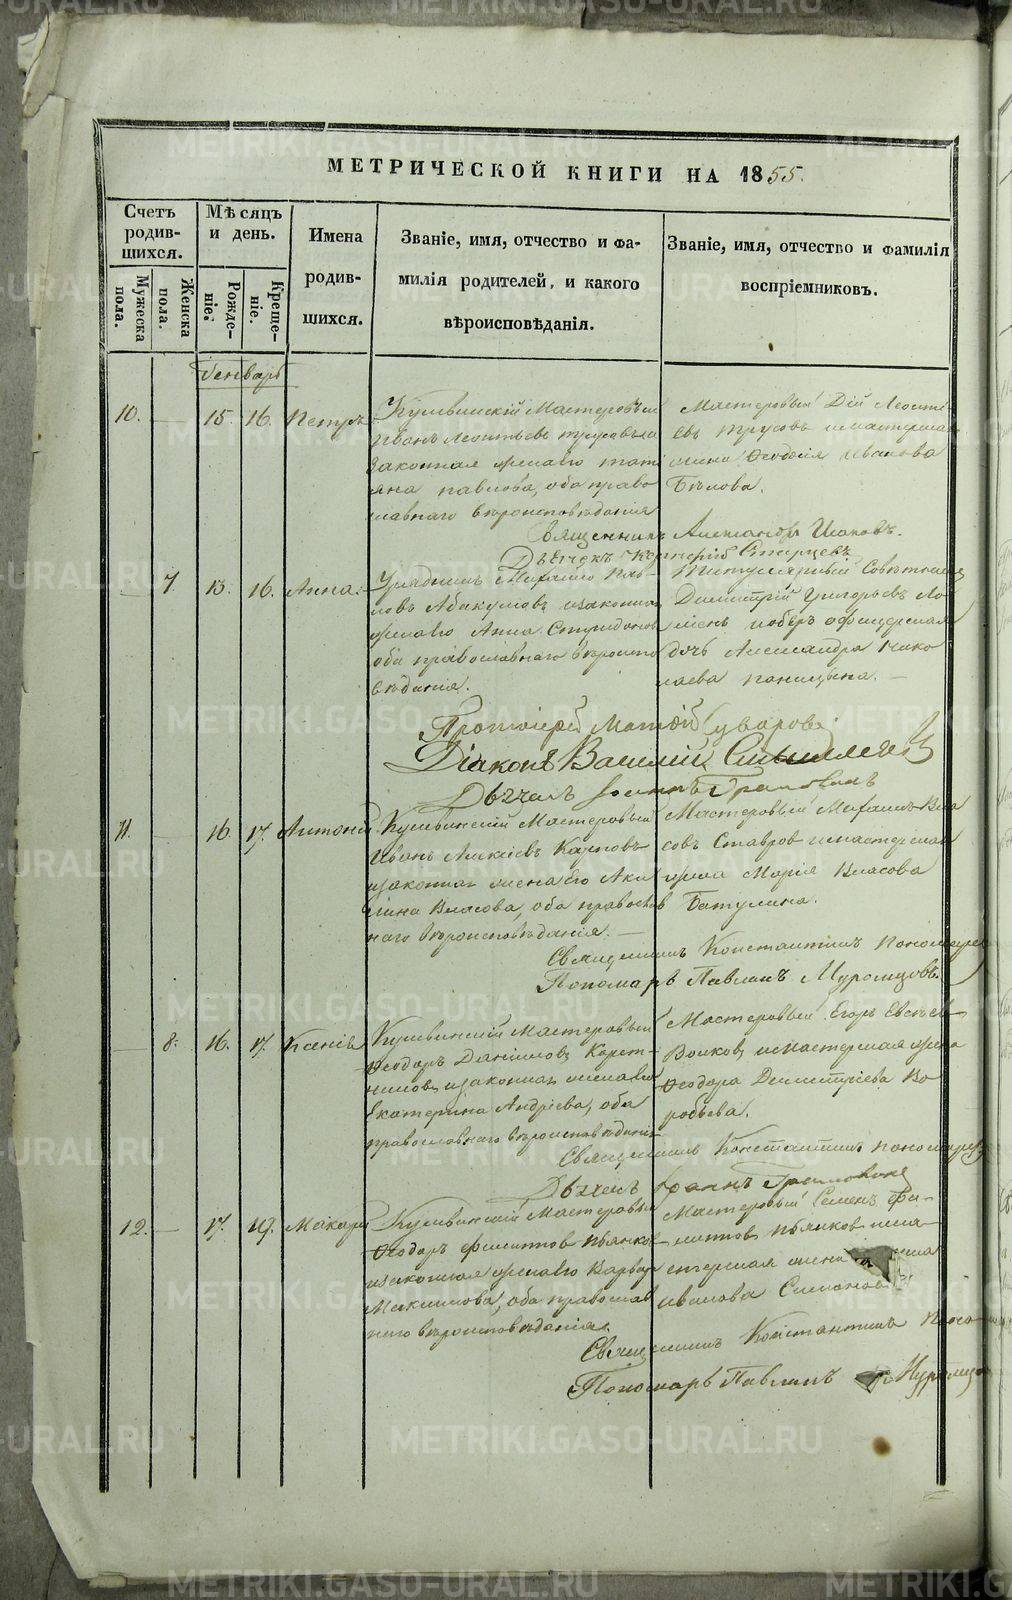 МЕТРИЧЕСКОЙ КНИГИ НА 1855.
Счетъ родив-шихся.
Мужеска пола.
Женска пола.
Мѣсяцъ и день.
Рожде-ніе.
Креще-ніе.
Имена
родив-
шихся.
Званіе, имя, отчество и фа-
милія родителей, и какого
вѣроисповѣданія.
Званіе, имя, отчество и фамилія
воспріемниковъ.
Генварь
10. 15. 16. Петръ
Кушвинскій Мастеровый
Иванъ Леонтьевъ
законная жена его Тати
яна Павлова, оба право
славнаго вѣроисповѣданія
Мастеровый Дій Леонтi-
евъ Трусовъ и мастерска
Ѳеодосія Иванова
Бѣлова.
Священникъ Александръ
Дьячекъ
7. 13. 16. Анна.
Урядникъ Михаило Пав-
ловъ Абакумовъ и законная
жена его Анна Спиридонова
оба православнаго вѣроиспо
вѣданія.
Титулярный Совѣтникъ
Димитрій Григорьевъ
оберъ офицерская
дочь Александра Нико
лаева
Протоіерей Матѳій Суваровъ
Діаконъ Василій
Дьячекъ Іоаннъ
11. 16. 17. Антоній
Кушвинскій Мастеровый
Иванъ Алексіевъ Карповъ
и законная жена его Аки
лина Власова, оба православ
наго вѣроисповѣданія.
Мастеровый Михаилъ Вла
совъ Ставровъ и мастерская
Марія Власова
Батулина.
Священникъ Константинъ Пономаревъ
Пономарь Павлинъ Муромцовъ.
8. 16. 17. Ксенія
Кушвинскій Мастеровый
Ѳеодоръ Даніиловъ Корот-
и законная жена его
Екатерина Андріева, оба
православнаго вѣроисповѣданія
Мастеровый Егоръ Евсѣевъ
Волковъ и мастерская жена
Ѳеодора Димитріева Во
робьева.
Священникъ Константинъ Пономаревъ
Дьячекъ Іоаннъ
12. 17. 19. Макарій
Кушвинскій Мастеровый
Ѳеодоръ Филиптовъ Пьянков
и законная жена его Варвара
Максимова, оба православ
наго вѣроисповѣданія.
Мастеровый Семенъ Фи-
липтовъ Пьянковъ и ма-
стерская жена
Иванова Симанов
Священникъ Константинъ Поно
Пономарь Павлинъ Муромцов
METRIKI.GASO-URAL.RU